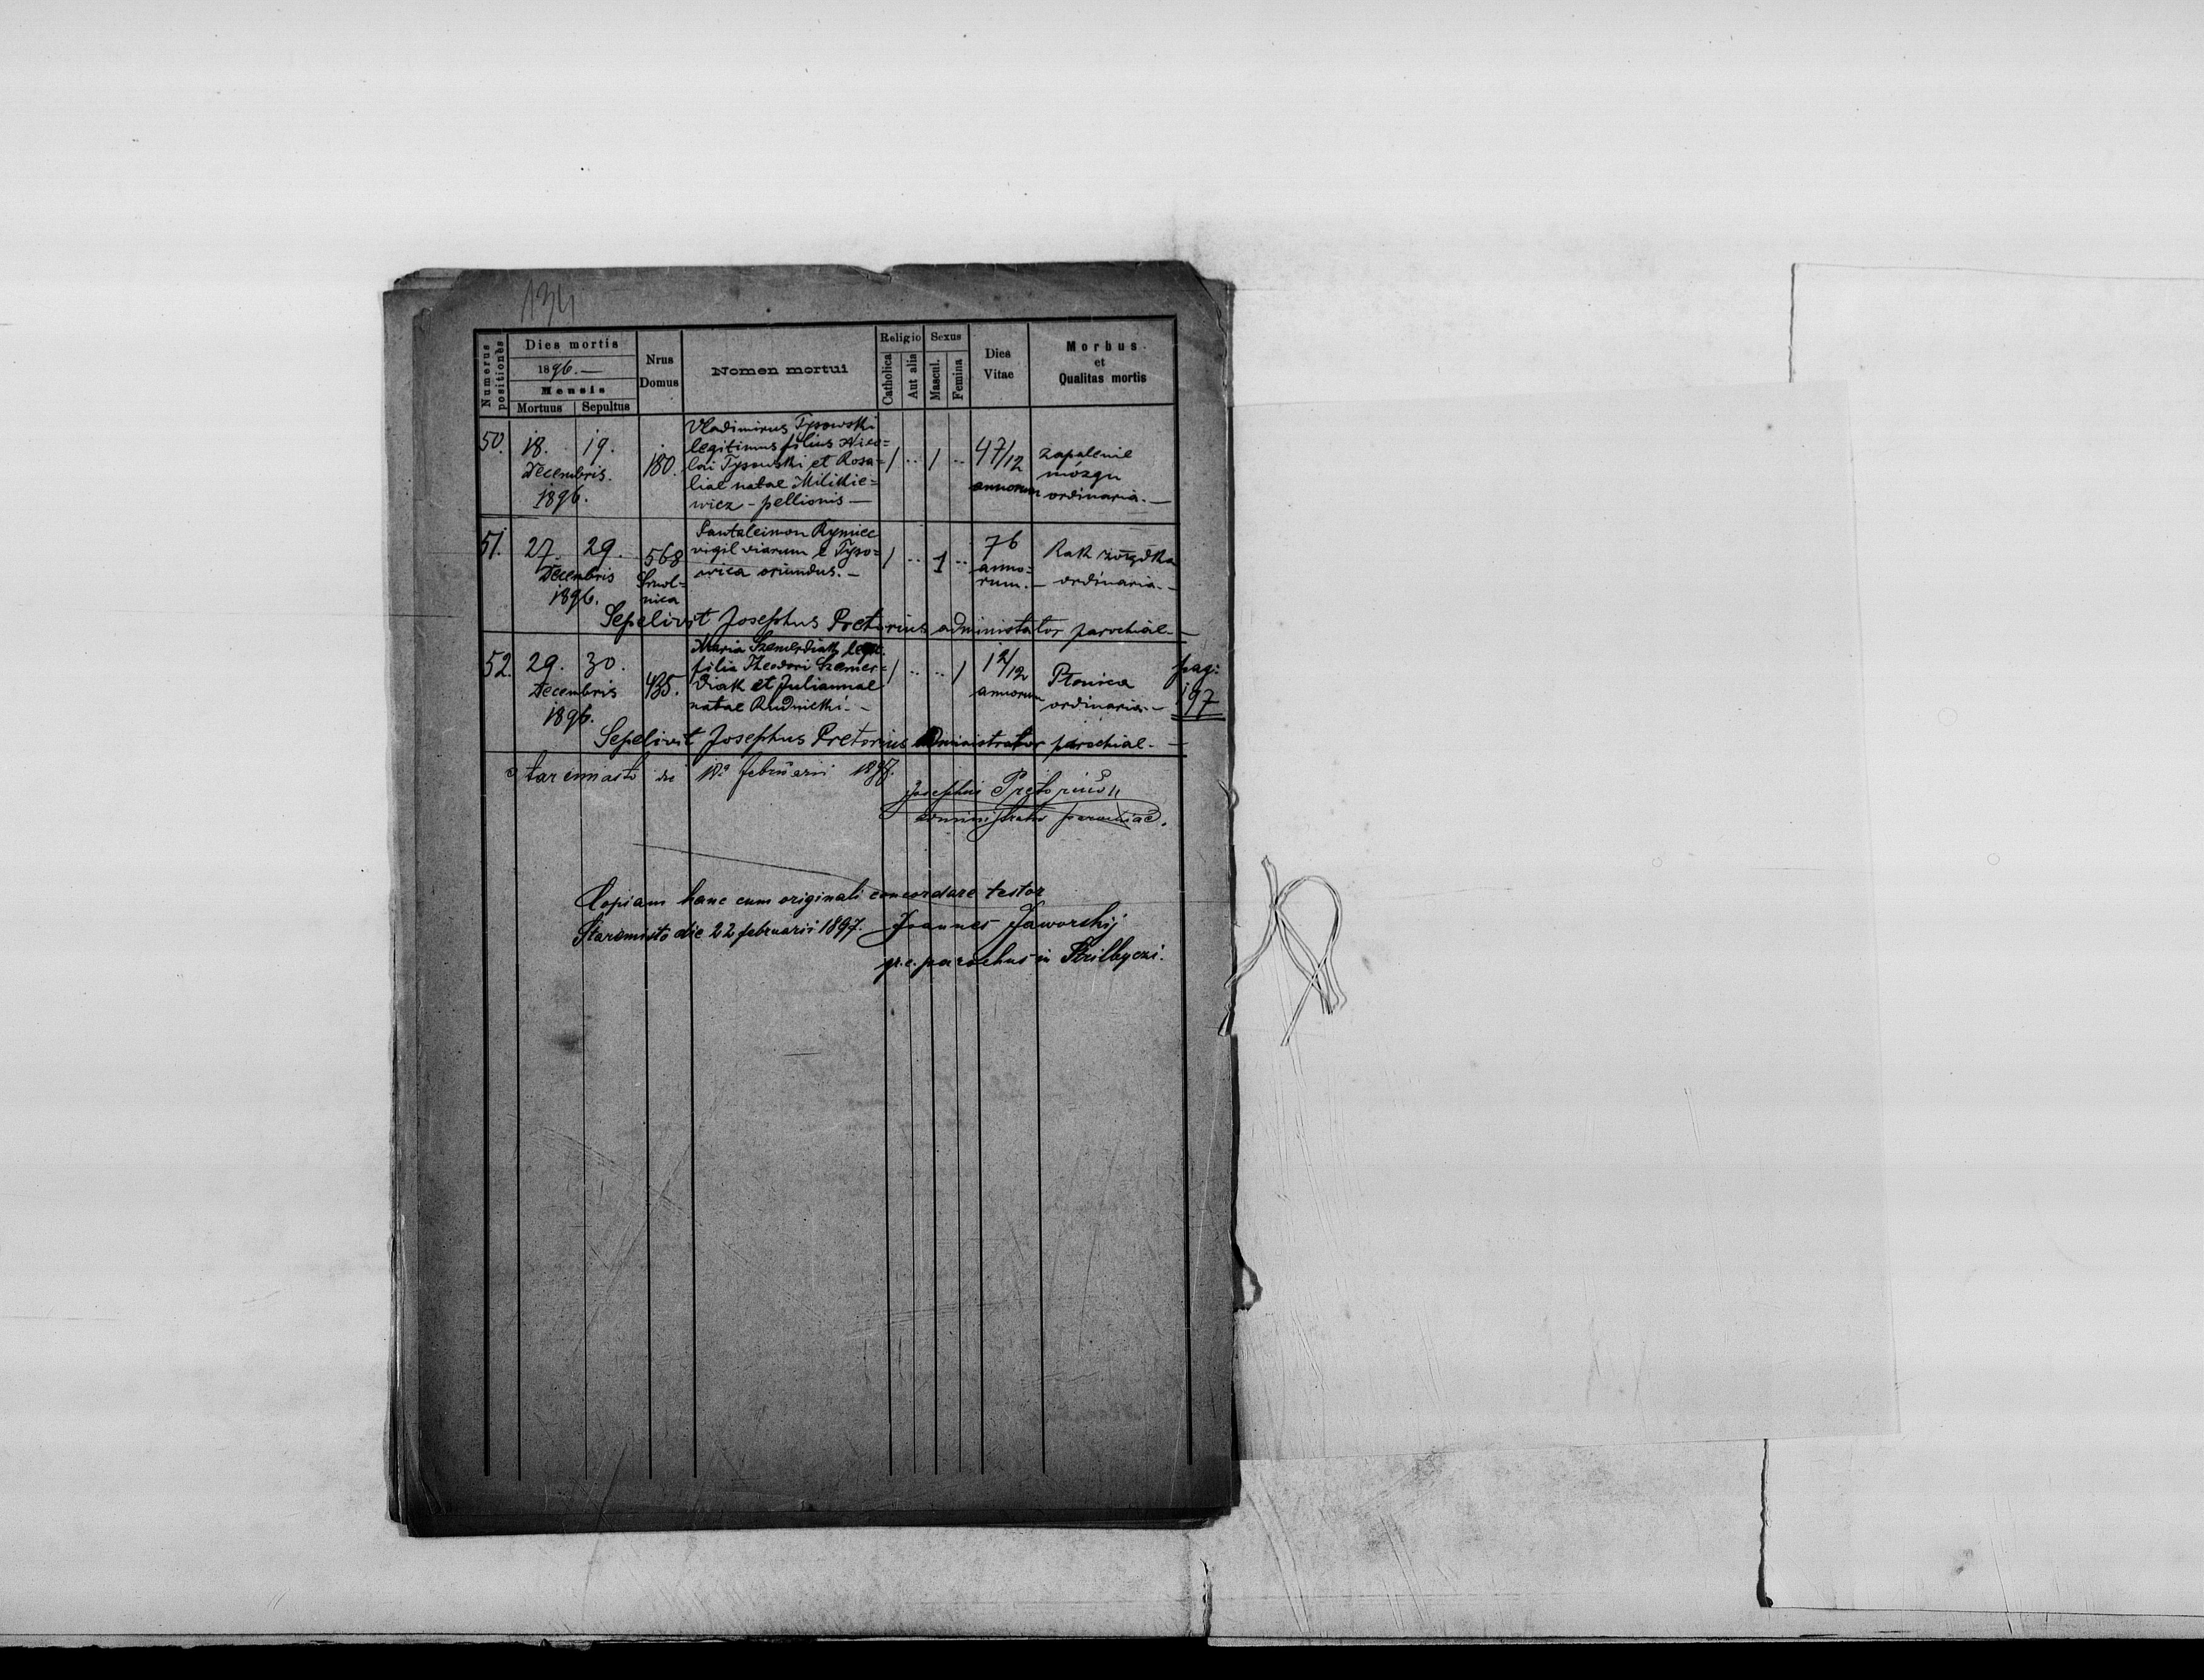 134
Numerus positiones
Dies mortis
1896.—
Mensis
Mortuus Sepultus
Nrus Domus
Nomen mortui
Religio
Catholica
Aut alia
Sexus
Mascul.
Femina
Dies Vitae
Morbus et Qualitas mortis
50. 18. 19. Decembris. 1896.
180.
Vladimirus Tysowski
legitimus filius Nico=
lai Tysowski et Rosa=
liae natae Milikie=
wicz - pellionis —
1 .. 1 ..
4 7/12
annorum
zapalenie
mózgu
ordinaria. —
51. 27. 29. Decembris 1896.
568
Pantaleimon Rymiec
vigil viarum e Tyso=
wica oriundus. —
1 .. 1 ..
76
anno=
rum. —
Rak żołądka
ordinaria. —
Sepelivit Josephus Pretorius administator parochial. —
52. 29. 30. Decembris 1896.
435.
Maria Szemerdiak
filia Theodori Szemer=
diak et Juliannae
natae Rudnicki. —
1 .. .. 1
1 2/12
annorum
Płonica
ordinaria. —
pag:
197
Sepelivit Josephus Pretorius administrator parochial. —
Staremiasto die februarii 1897.
Josephus Pretorius
administrator parochiae.
Copiam hanc cum originali concordare testor
Staremisto die 22 februarii 1897. Joannes Jaworskij
gr. c. parochus in